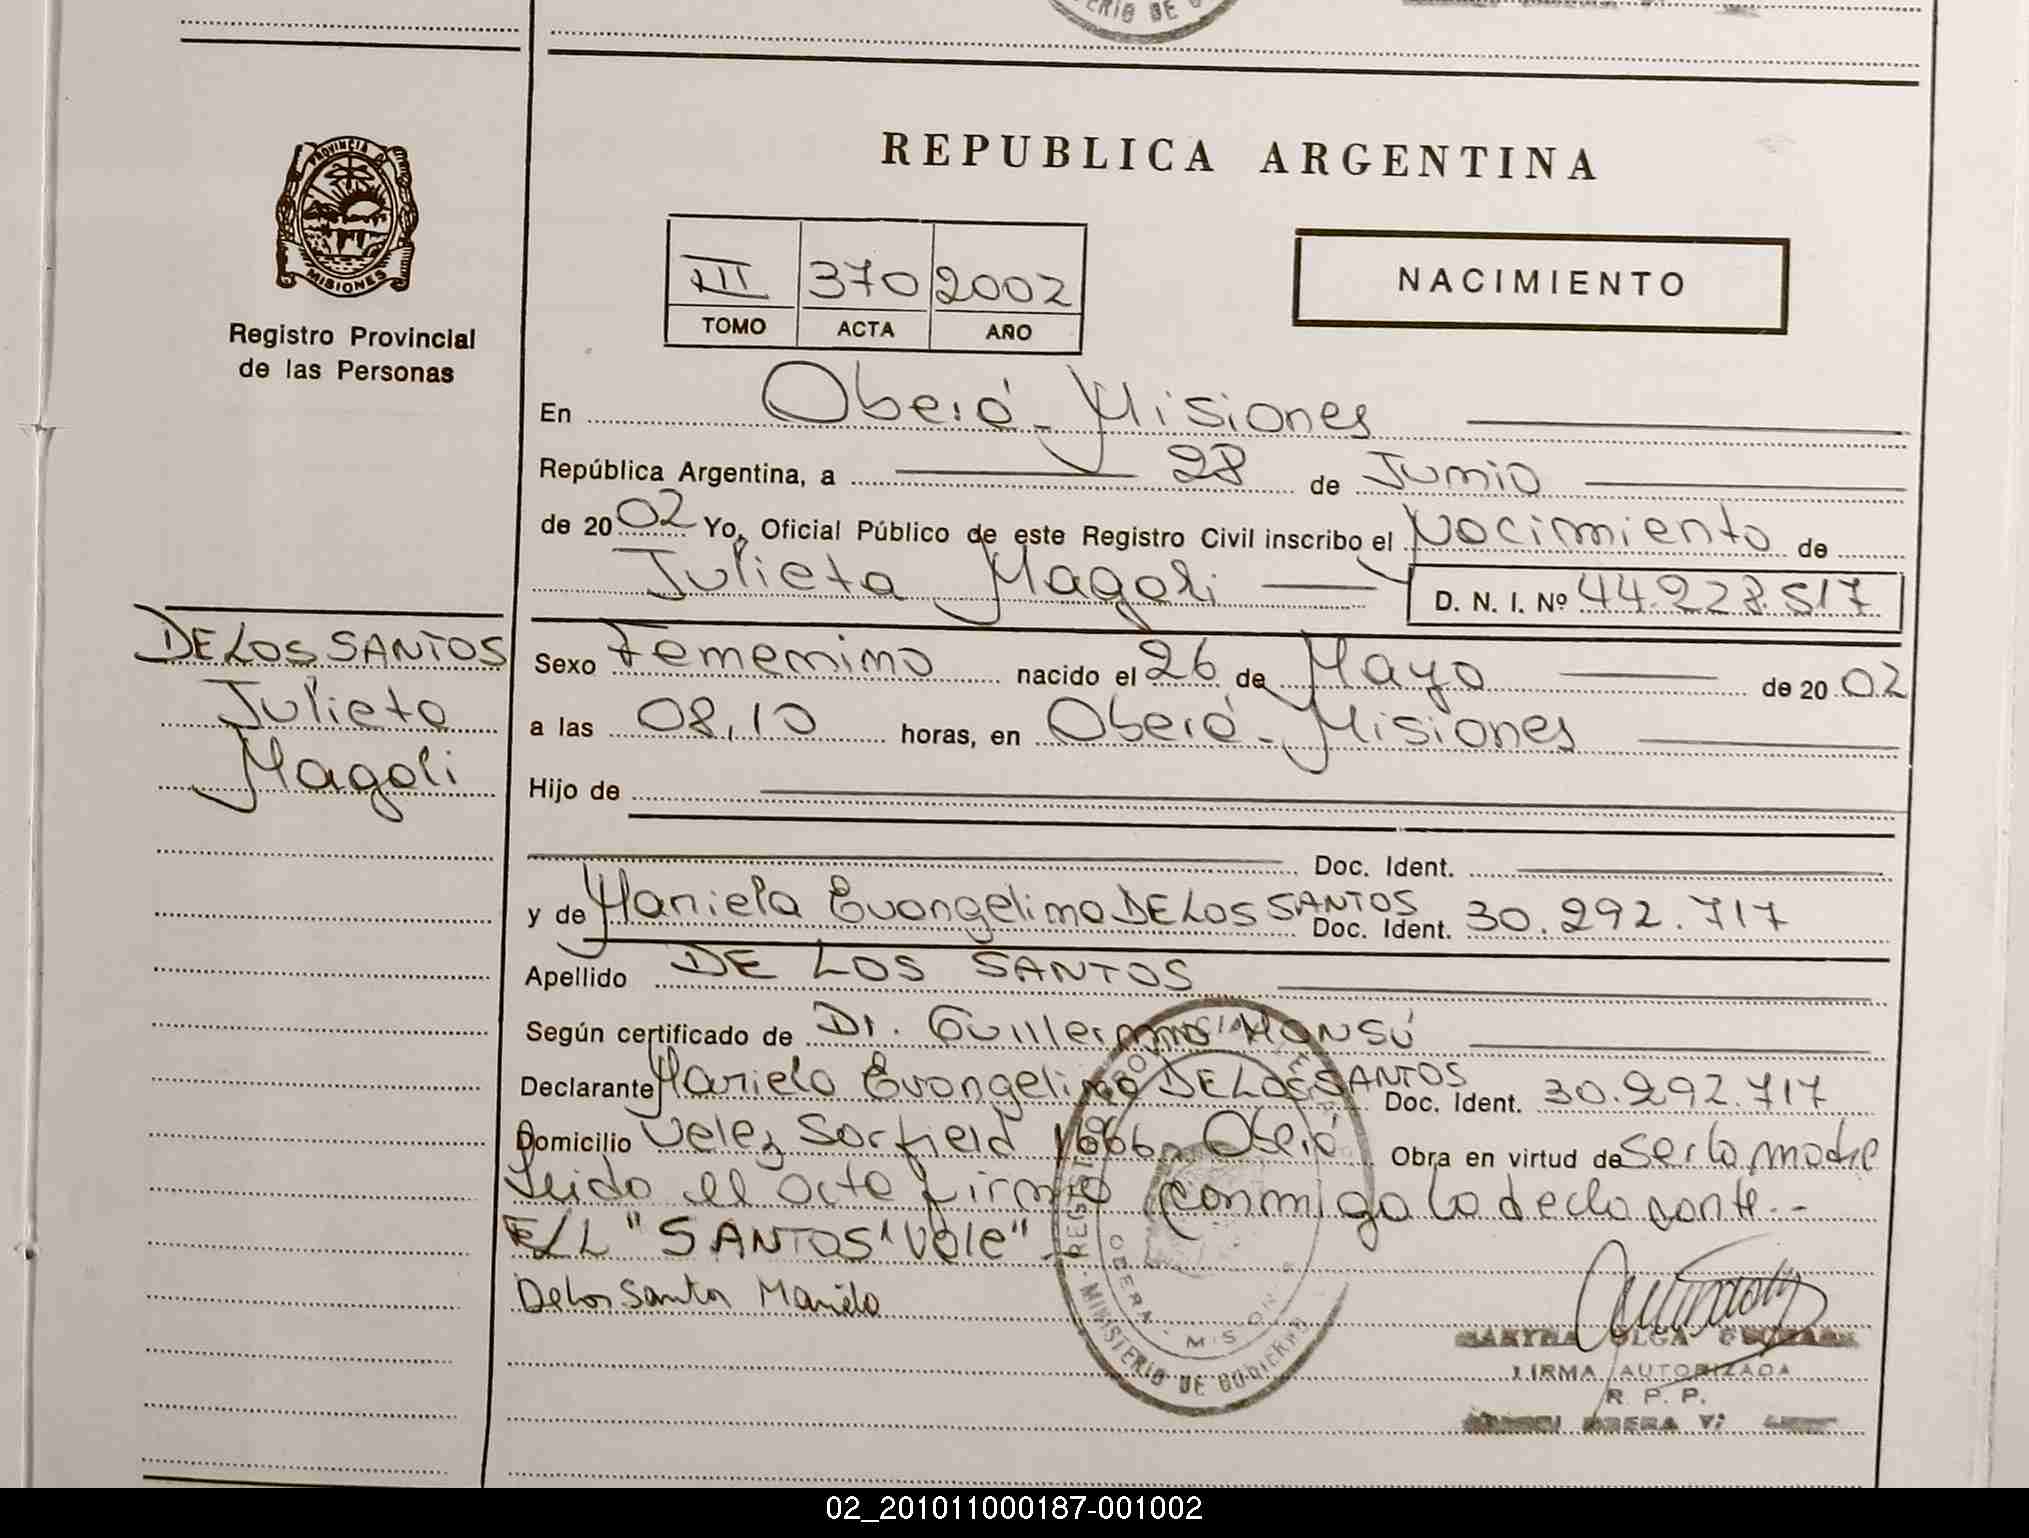 REPUBLICA ARGENTINA
PROVINCIA DE
MISIONES
Registro Provincial
de las Personas
III 370 2002
TOMO ACTA AÑO
NACIMIENTO
En Oberá - Misiones
República Argentina, a 28 de Junio
de 20 02 Yo, Oficial Público de este Registro Civil inscribo el Nacimiento de
Julieta Magali D. N. I. Nº 44.228.517
DE LOS SANTOS
Julieta
Magali
Sexo Femenino nacido el 26 de Mayo de 20 02
a las 08,10 horas, en Oberá - Misiones
Hijo de
Doc. Ident.
y de Mariela Evangelina DE LOS SANTOS Doc. Ident. 30.292.717
Apellido DE LOS SANTOS
Según certificado de Dr. Guillermo MONSÚ
Declarante Mariela Evangelina DE LOS SANTOS Doc. Ident. 30.292.717
Domicilio Velez Sarfield 1666 - Oberá Obra en virtud de ser la madre
Leido el acta firma conmigo la declarante.-
E/L "SANTOS" Vale"
De los Santos Mariela
MINISTERIO DE GOBIERNO
OLGA
FIRMA AUTORIZADA
R. P. P.
OBERA
02_201011000187-001002